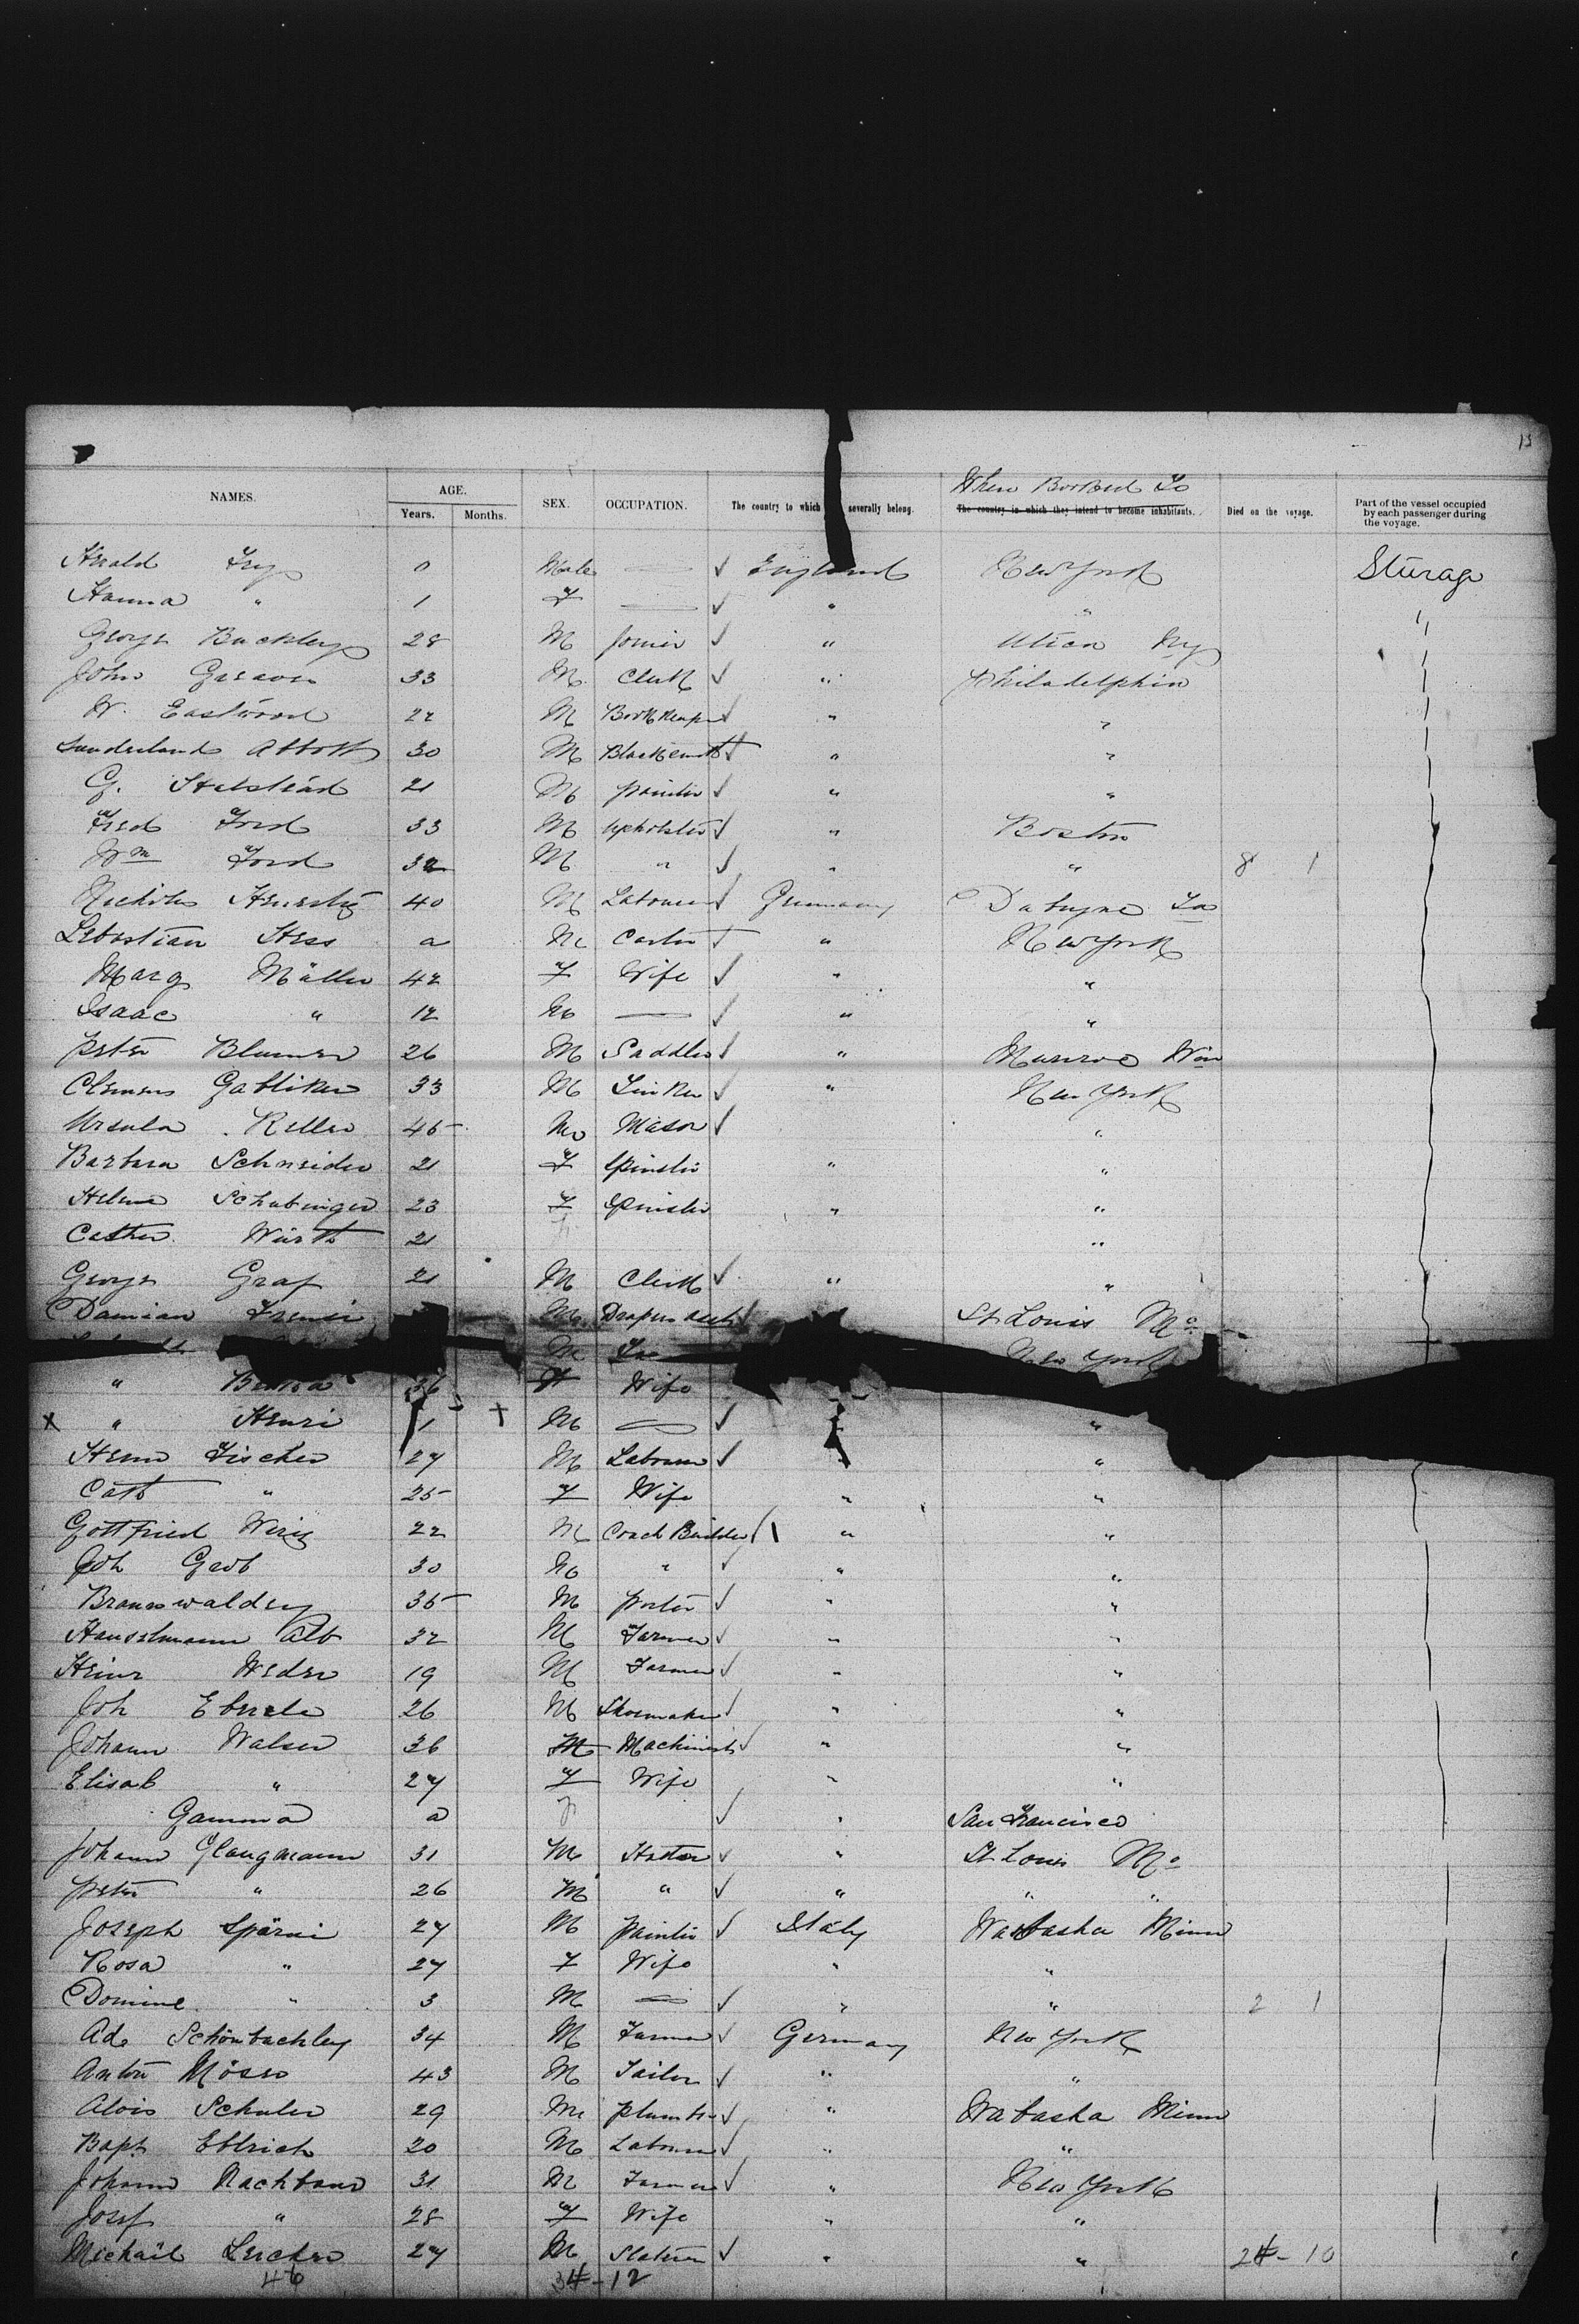 13
NAMES. AGE. Years. Months. SEX. OCCUPATION. The country to which severally belong. Where Booked To The country in which they intend to become inhabitants. Died on the voyage. Part of the vessel occupied by each passenger during the voyage.
Herald Fry 0 Male — ✓ England New York Sturage
Hanna " 1 F — ✓ " " "
George Buckley 28 M Joiner ✓ " Utica Ny
John Greaves 33 M Clerk ✓ " Philadelphia
W. Eastwood 22 M Bookkeeper ✓ " "
Sunderland Abbott 30 M Blacksmith ✓ " "
G. Halstead 21 M painter ✓ " "
Fred Ford 33 M upholster ✓ " Boston
Wm Ford 32 M " ✓ " " 8 1
40 M Labourer ✓ Germany
Sebastian Hess a M ✓ " New York
Marg Müller 42 F Wife ✓ " "
Isaac " 12 M — ✓ " "
Peter Blumer 26 M Saddler ✓ " Munroe Wis
Clemens Gabliker 33 M ✓ " New York
Ursula Keller 45 M Mason ✓ "
Barbara Schneider 21 F Spinster " "
Helene Schubinger 23 F Spinster " "
Cather Würth 21 "
George Graf 21 M Clerk ✓ " "
Damian M Drapers Asst ✓ St Louis Mo
M New York
" 36 Wife
x " Henri 1 M — ✓ "
Herm Fischer 27 M Labourer ✓ "
Cath " 25 F Wife " "
Gottfried 22 M Coach Builder " "
Joh Grob 30 M " ✓ " "
Braunwalder 35 M porter ✓ " "
Hausselmann Alb 32 M Farmer ✓ " "
Heinr Weder 19 M Farmer ✓ " "
Joh Eberle 26 M Shoemaker ✓ " "
Johann Walser 36 M Machinist ✓ " "
Elisab " 27 F Wife " "
Gamma a F ✓ " San Francisco
Johann 31 M Hatter ✓ " St Louis Mo
Peter " 26 M " ✓ " " "
Joseph Spärni 27 M Painter ✓ Italy Wabasha Minn
Rosa " 27 F Wife " "
Domine " 3 M — ✓ " " 2 1
Ad. Schönbachley 34 M Farmer ✓ Germany New York
Anton Möser 43 M Tailor ✓ " "
Alois Schuler 29 M Plumber ✓ " Wabasha Minn
Bapt 20 M Labourer ✓ " "
Johann Nachbaur 31 M Farmer ✓ " New York
Josef " 28 F Wife " "
Michail 27 M ✓ " " 24 - 10
46 34 - 12